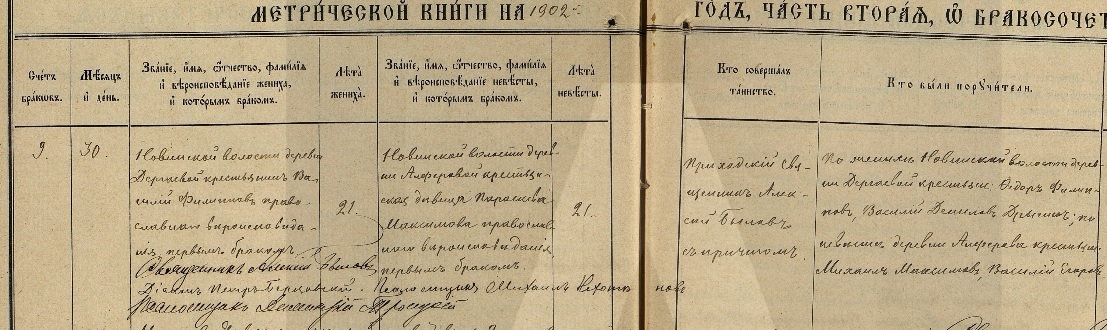 МЕТРИ́ЧЕСКОЙ КНИ́ГИ НА 1902
ГОДЪ, ЧА́СТЬ ВТОРА́Я, Ѡ БРАКОСОЧЕТ
Сче́тъ бра́кѡвъ.
Мѣ́сяцъ и́ де́нь.
Зва́нїе, и́мя, ѻ́тчество, фами́лїя
и҆ вѣроисповѣ́данїе жениха̀,
и҆ кото́рымъ бра́комъ.
Лѣ́та
жениха̀.
Зва́нїе, и́мя, ѻ́тчество, фами́лїя
и҆ вѣроисповѣ́данїе невѣ́сты,
и҆ кото́рымъ бра́комъ.
Лѣ́та
невѣ́сты.
Кто̀ соверша́лъ
та́инство.
Кто̀ бы́ли порꙋчи́тели.
9.
30.
Новинской волости деревни
Дергаевой крестьянинъ Ва-
силій Филиповъ право-
славнаго вѣроисповѣда-
нія, первымъ бракомъ.
21.
Новинской волости дерев-
ни Алферовой крестьян-
ская дѣвица Параскева
Максимова православ-
наго вѣроисповѣданія,
первымъ бракомъ.
21.
Приходскій свя-
щенникъ Алек-
сій Быловъ
съ причтомъ.
По женихѣ Новинской волости дерев-
ни Дергаевой крестьяне: Ѳедоръ Филип-
повъ, Василій Даниловъ; по
невѣстѣ деревни Алферова крестьяне
Михаилъ Максимовъ, Василій Егоровъ
Священникъ Алексій Быловъ
Діаконъ Петръ. Псаломщикъ Михаилъ
Псаломщикъ Троицкій